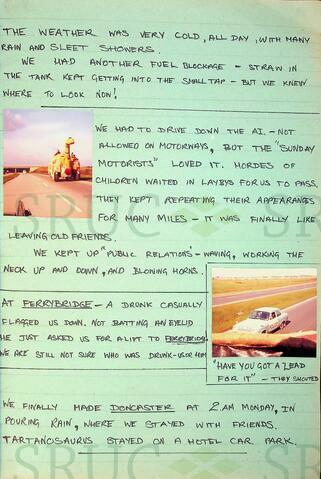 THE WEATHER WAS VERY COLD, ALL DAY, WITH MANY
RAIN AND SLEET SHOWERS.
WE HAD ANOTHER FUEL BLOCKAGE - STRAW IN
THE TANK KEPT GETTING INTO THE SMALL TAP - BUT WE KNEW
WHERE TO LOOK NOW!
WE HAD TO DRIVE DOWN THE A1. - NOT
ALLOWED ON MOTORWAYS, BUT THE "SUNDAY
MOTORISTS" LOVED IT. HORDES OF
CHILDREN WAITED IN LAYBYS FOR US TO PASS.
THEY KEPT REPEATING THEIR APPEARANCES
FOR MANY MILES - IT WAS FINALLY LIKE
LEAVING OLD FRIENDS.
WE KEPT UP "PUBLIC RELATIONS" - WAVING, WORKING THE
NECK UP AND DOWN, AND BLOWING HORNS.
AT FERRYBRIDGE - A DRUNK CASUALLY
FLAGGED US DOWN. NOT BATTING AN EYELID
HE JUST ASKED US FOR A LIFT TO FERRYBRIDGE
WE ARE STILL NOT SURE WHO WAS DRUNK - US OR HIM
"HAVE YOU GOT A LEAD
FOR IT" - THEY SHOUTED
WE FINALLY MADE DONCASTER AT 2.AM MONDAY, IN
POURING RAIN, WHERE WE STAYED WITH FRIENDS.
TARTANOSAURUS STAYED ON A HOTEL CAR PARK.
SRUC
SRUC